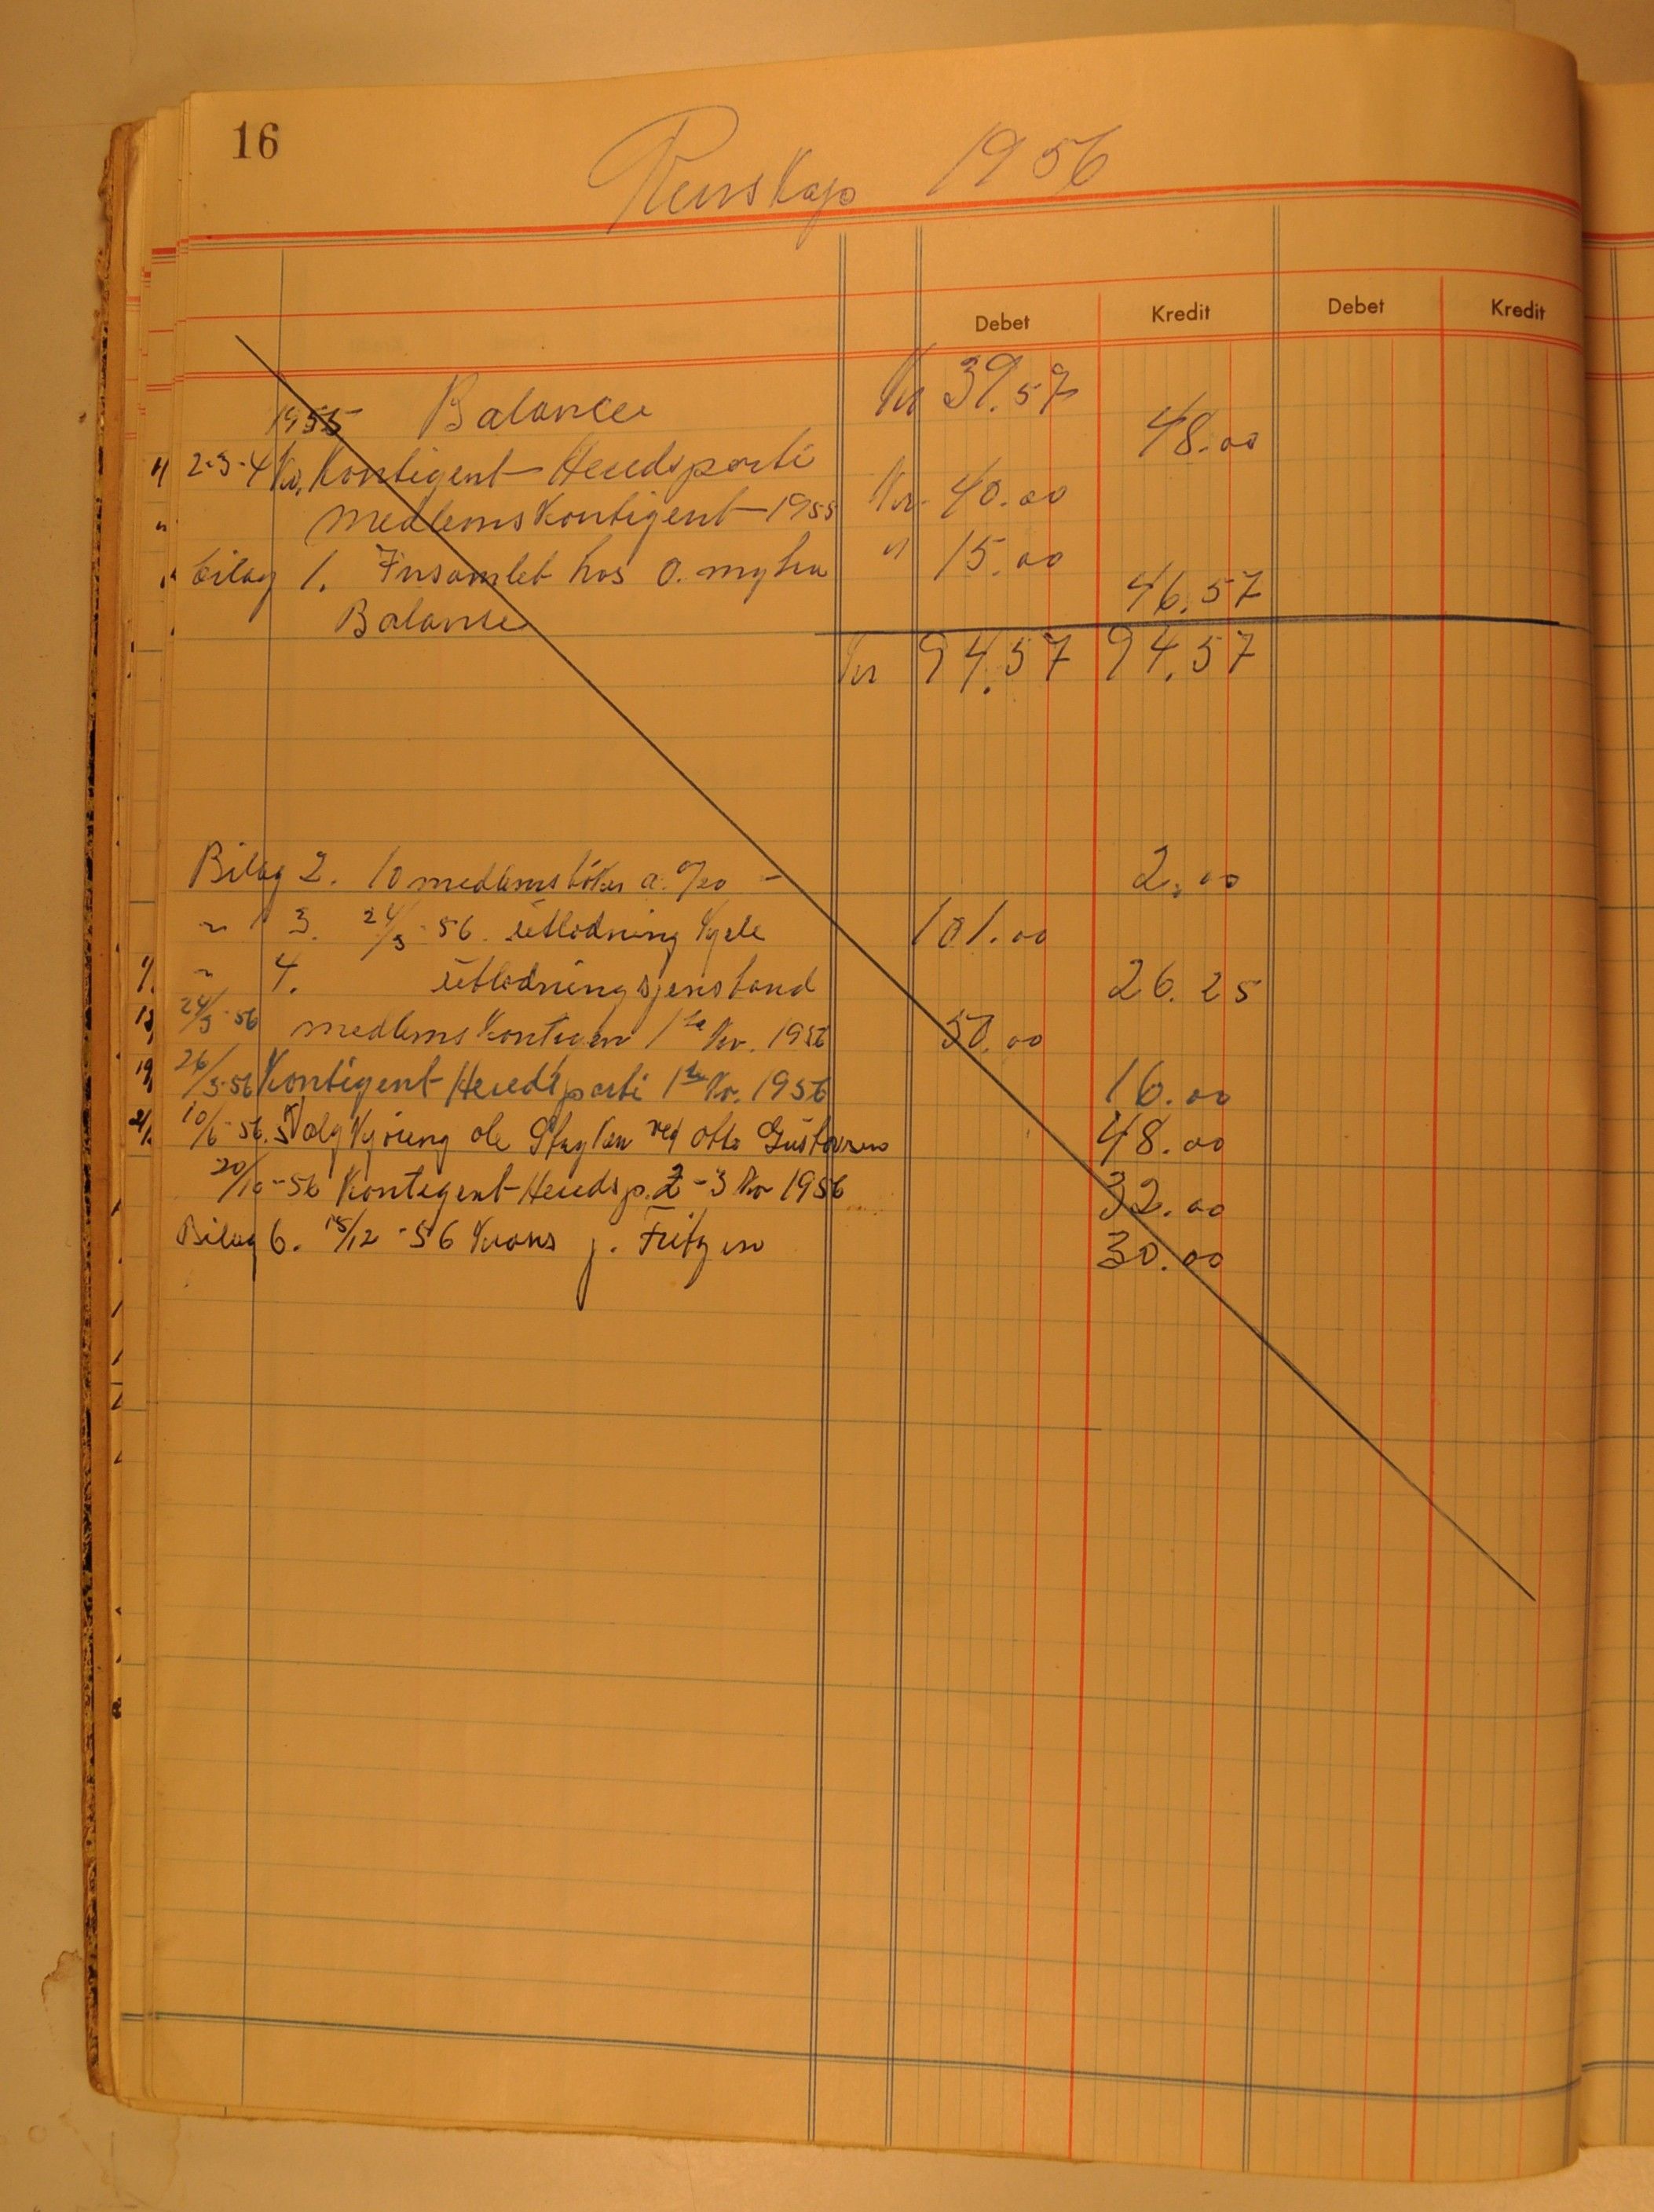 16
Renskap 1956
Debet Kredit Debet Kredit
1955 Balance Kr 39.57
2-3-4 Kv. Kontigent Heredsparti 48.00
medlemskontigent 1955 Kr. 40.00
bilag 1. Insamlet hos O. myhra " 15.00
Balance 46.57
Kr 94.57 94.57
Bilag 2. 10 medlemsböker a. 0/20 - 2.00
" 3. 24/3-56. utlodning Kjele 101.00
" 4. utlodningsjenstand 26.25
24/3-56 medlemskontigen 1ste Kv. 1956 50.00
26/3-56 Kontigent Heredsparti 1ste Kv. 1956 16.00
10/6-56. Valgkjöring ole ved Otto Gustavsen 48.00
20/10-56 Kontigent Heredsp. 2-3 Kv 1956 32.00
Bilag 6. 15/12-56 Krans j. Fritzen 30.00